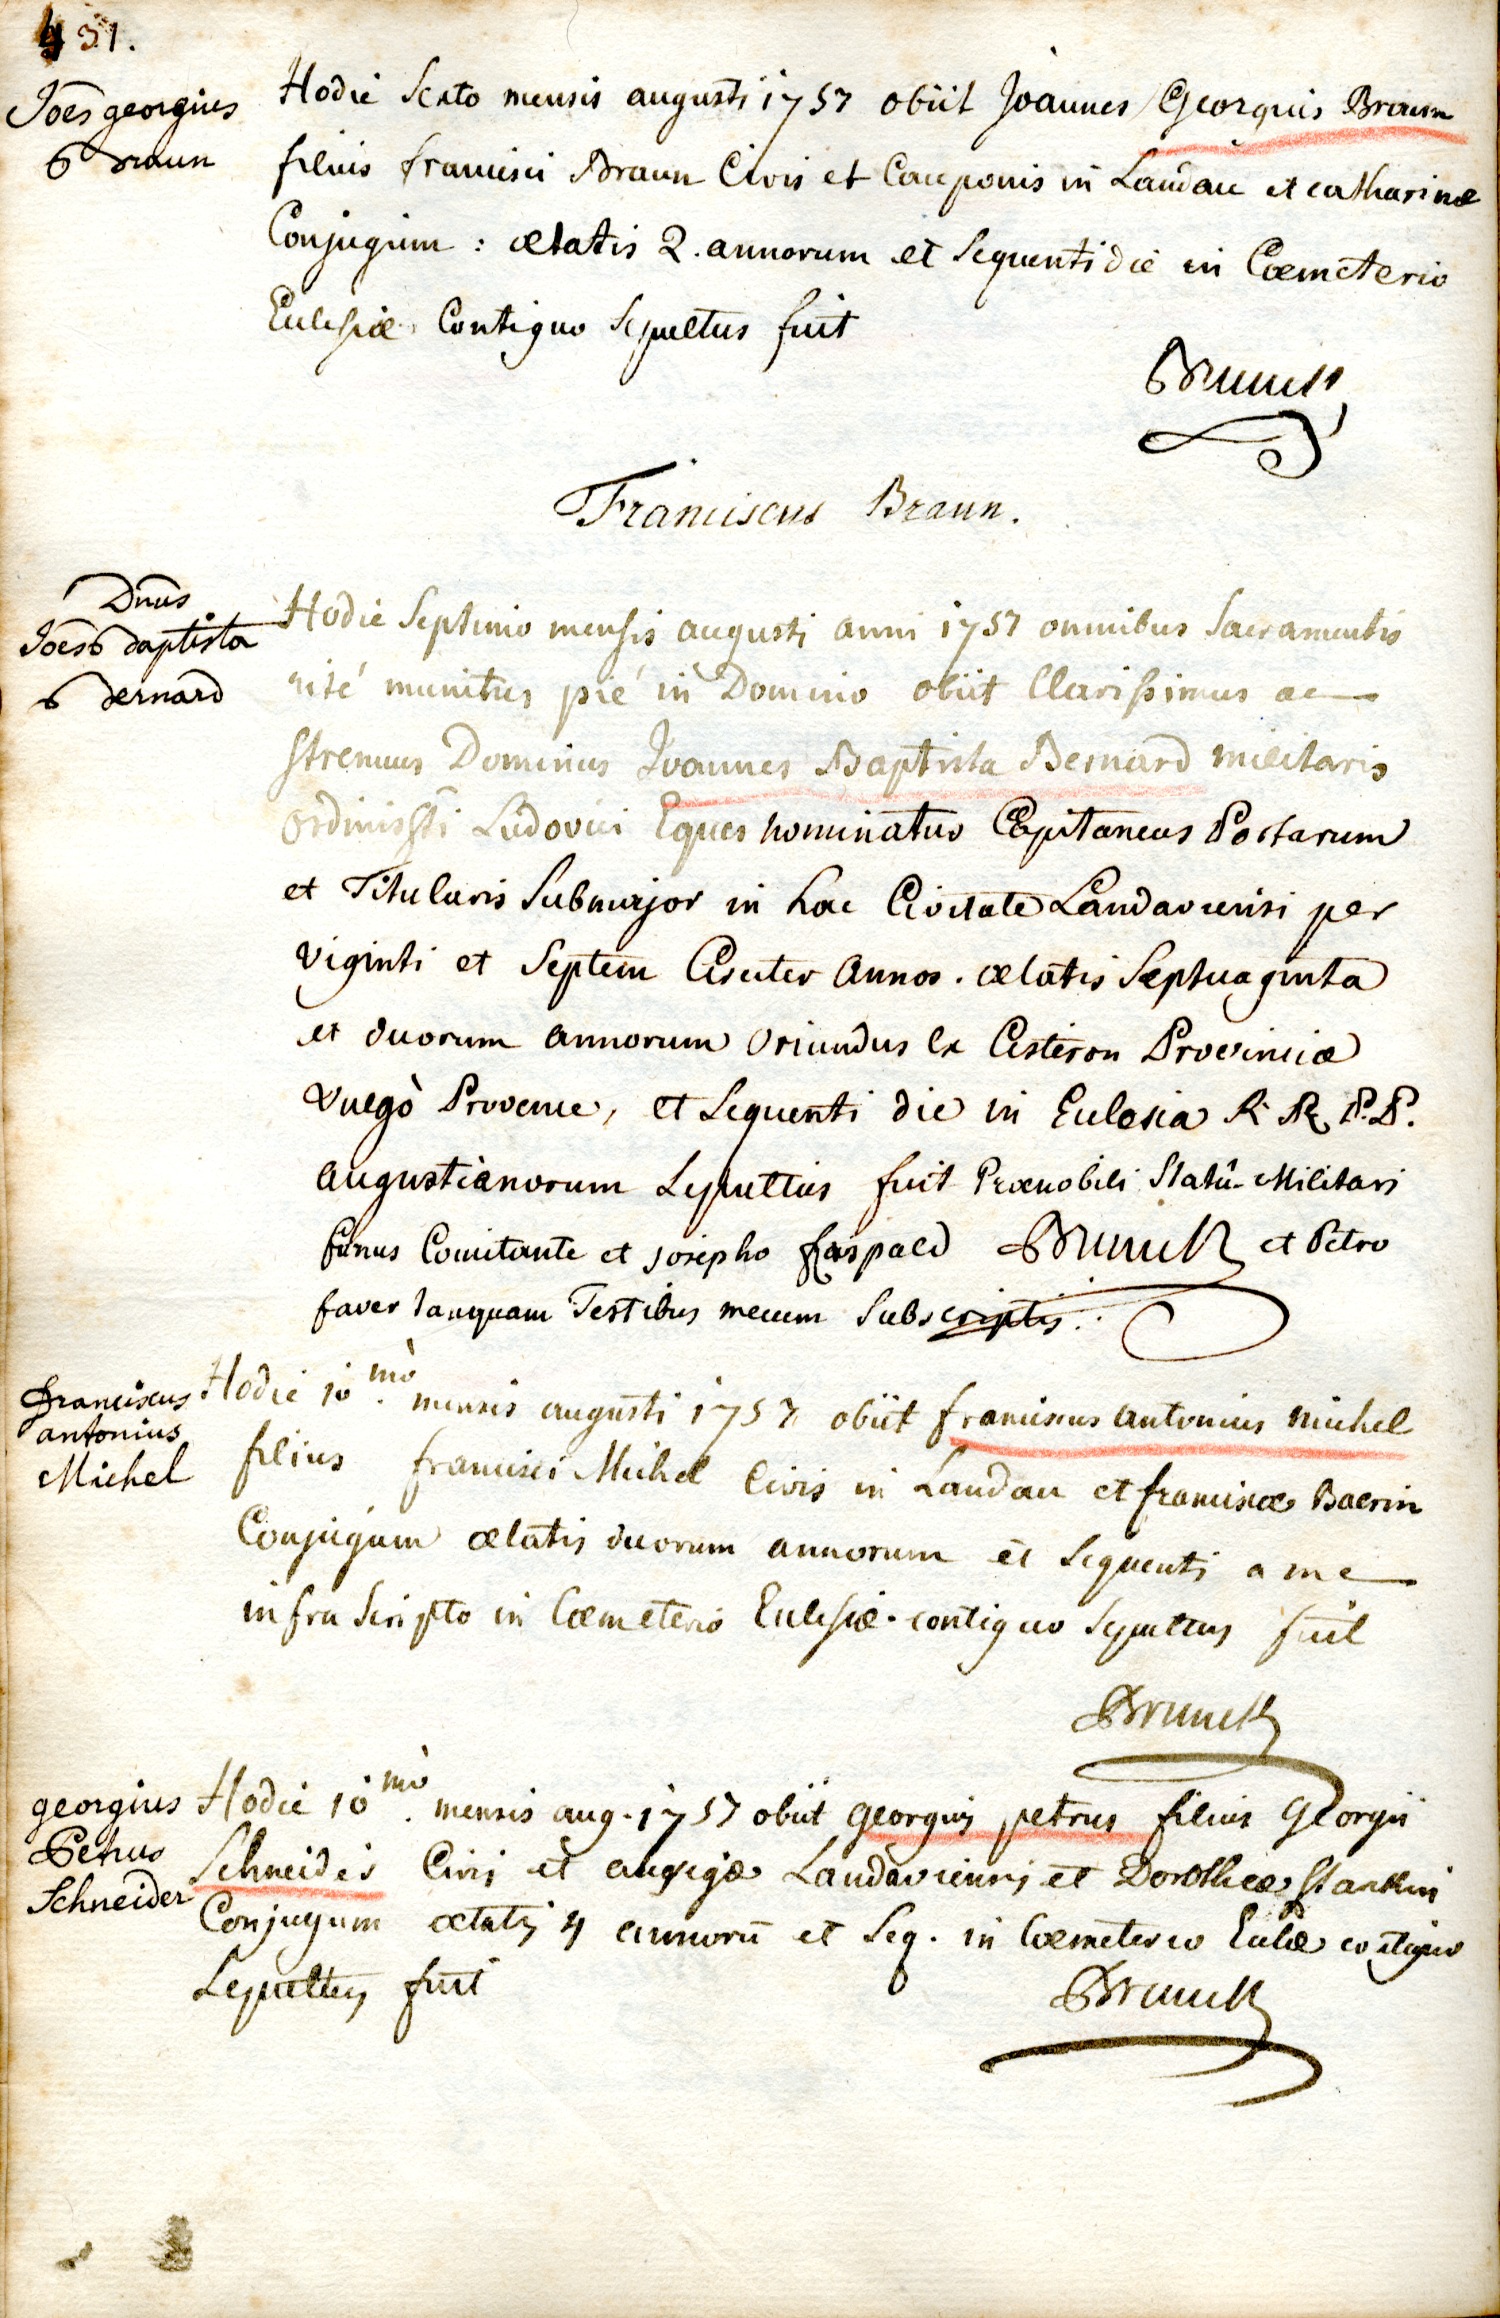 431.
Joes georgius
Braun
Hodie Sexto mensis augusti 1757 obiit Joannes Georgius Braun
filius francisci Braun Civis et Cauponis in Landau et catharinæ
Conjugum : ætatis 2. annorum et sequenti die in Cœmeterio
Ecclesiæ Contiguo sepultus fuit
Brunck
Franciscus Braun.
Dnus
Joes baptista
Bernard
Hodie Septimo mensis augusti anni 1757 omnibus Sacramentis
rité munitus pié in Domino obiit Clarissimus ac
strenuus Dominus Joannes Baptista Bernard militaris
ordinis Sti Ludovici Eques nominatus Capitaneus Portarum
et Titularis Submajor in hac Civitate Landaviensi per
viginti et Septem Circiter annos. ætatis Septuaginta
et duorum annorum oriundus ex Cisteron Provinciæ
vulgò Provence, et sequenti die in Ecclesia R. R. P.P.
augustianorum sepultus fuit Prænobili Statû Militari
funus Comitante et josepho Kaspald Brunck et Petro
faver tanquam Testibus mecum Subscriptis.
franciscus
antonius
Michel
Hodie 10mò. mensis augusti 1757 obiit franciscus antonius michel
filius francisci Michel Civis in Landau et franciscæ Baerin
Conjugum ætatis duorum annorum et sequenti a me
infra scripto in Cœmeterio Ecclesiæ contiguo sepultus fuit
Brunck
georgius
Petrus
Schneider
Hodie 10mò. mensis aug. 1757 obiit georgius petrus filius Georgii
Schneider Civis et aurigæ Landaviensis et Dorotheæ Starkin
Conjugum ætatis 4 annorū et seq. in Cœmeterio Eccliæ contiguo
Sepultus fuit
Brunck